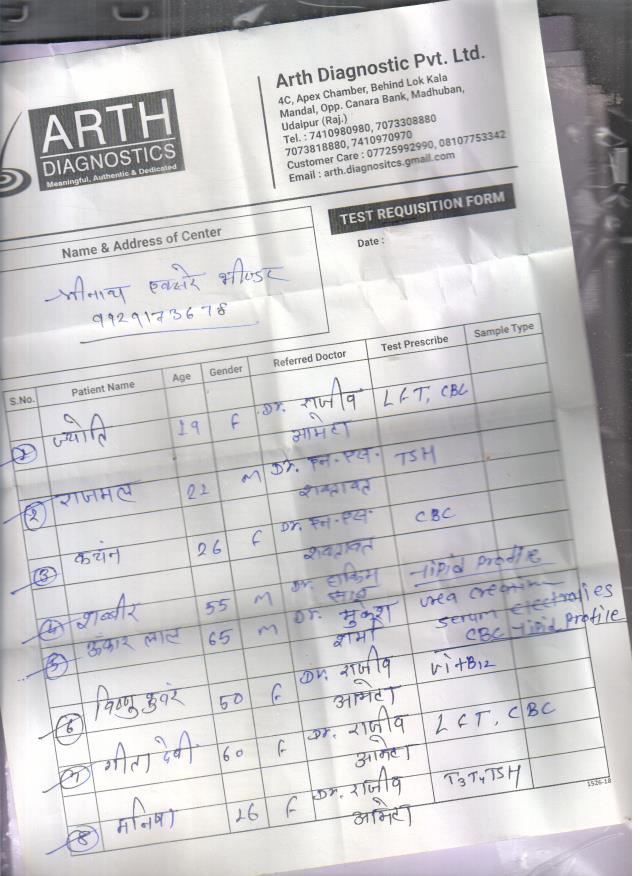 ARTH
DIAGNOSTICS
Meaningful, Authentic & Dedicated
Arth Diagnostic Pvt. Ltd.
4C, Apex Chamber, Behind Lok Kala
Mandal, Opp. Canara Bank, Madhuban,
Udaipur (Raj.)
Tel. : 7410980980, 7073308880
7073818880, 7410970970
Customer Care : 07725992990, 08107753342
Email : arth.diagnositcs.gmail.com
TEST REQUISITION FORM
Date :
Name & Address of Center
श्रीनाथ एक्सरे भीण्डर
9929173678
S.No. Patient Name Age Gender Referred Doctor Test Prescribe Sample Type
1 ज्योति 19 F Dr. राजीव आमेटा LFT, CBC
2 राजमल 22 M Dr. एन.एस. शक्तावत TSH
3 कचंन 26 F Dr. एन.एस. शक्तावत CBC
4 शब्बीर 55 M Dr. हाकिम साब lipid profile
5 ऊंकार लाल 65 M Dr. मुकेश शर्मा urea serum CBC lipid profile
6 विष्णु कुवंर 50 F Dr. राजीव आमेटा vit B12
7 गीता देवी 60 F Dr. राजीव आमेटा LFT, CBC
8 मनिषा 26 F Dr. राजीव आमेटा T3 T4 TSH
1526-18